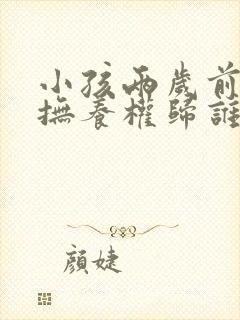 小孩兩歲前
撫養權歸誰
顏婕